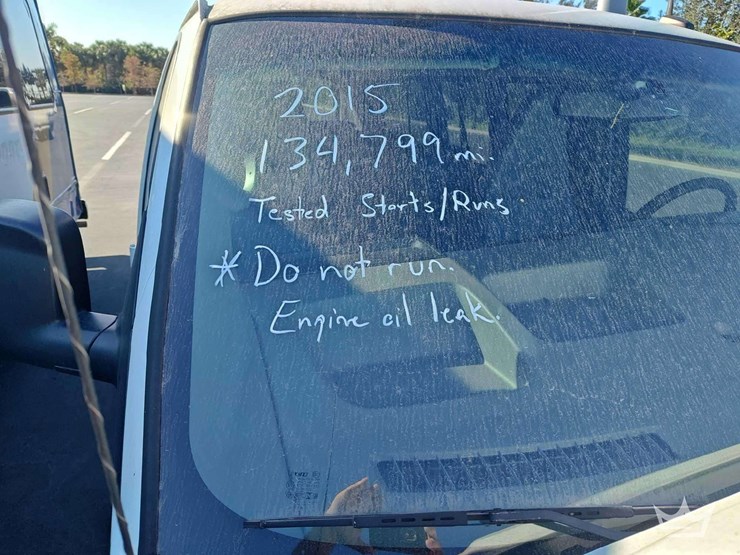 2015
134,799 mi.
Tested Starts/Runs.
* Do not run.
Engine oil leak.